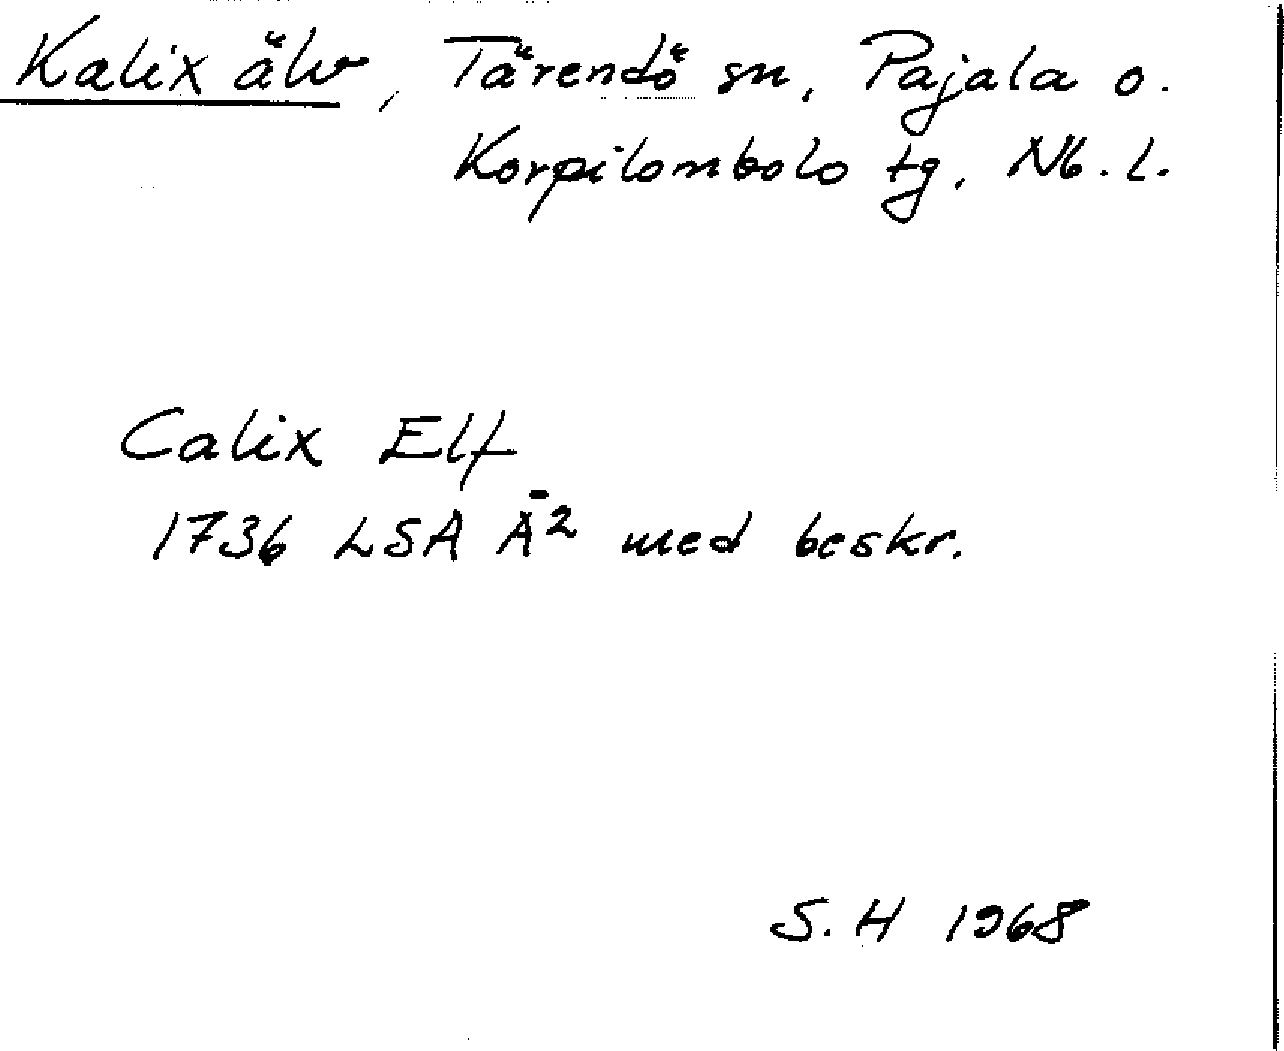 Kalix älv, Tärendö sn, Pajala o.
Korpilombolo tg, Nb. l.
Calix Elf
1736 LSA Ā² med beskr.
S. H 1968